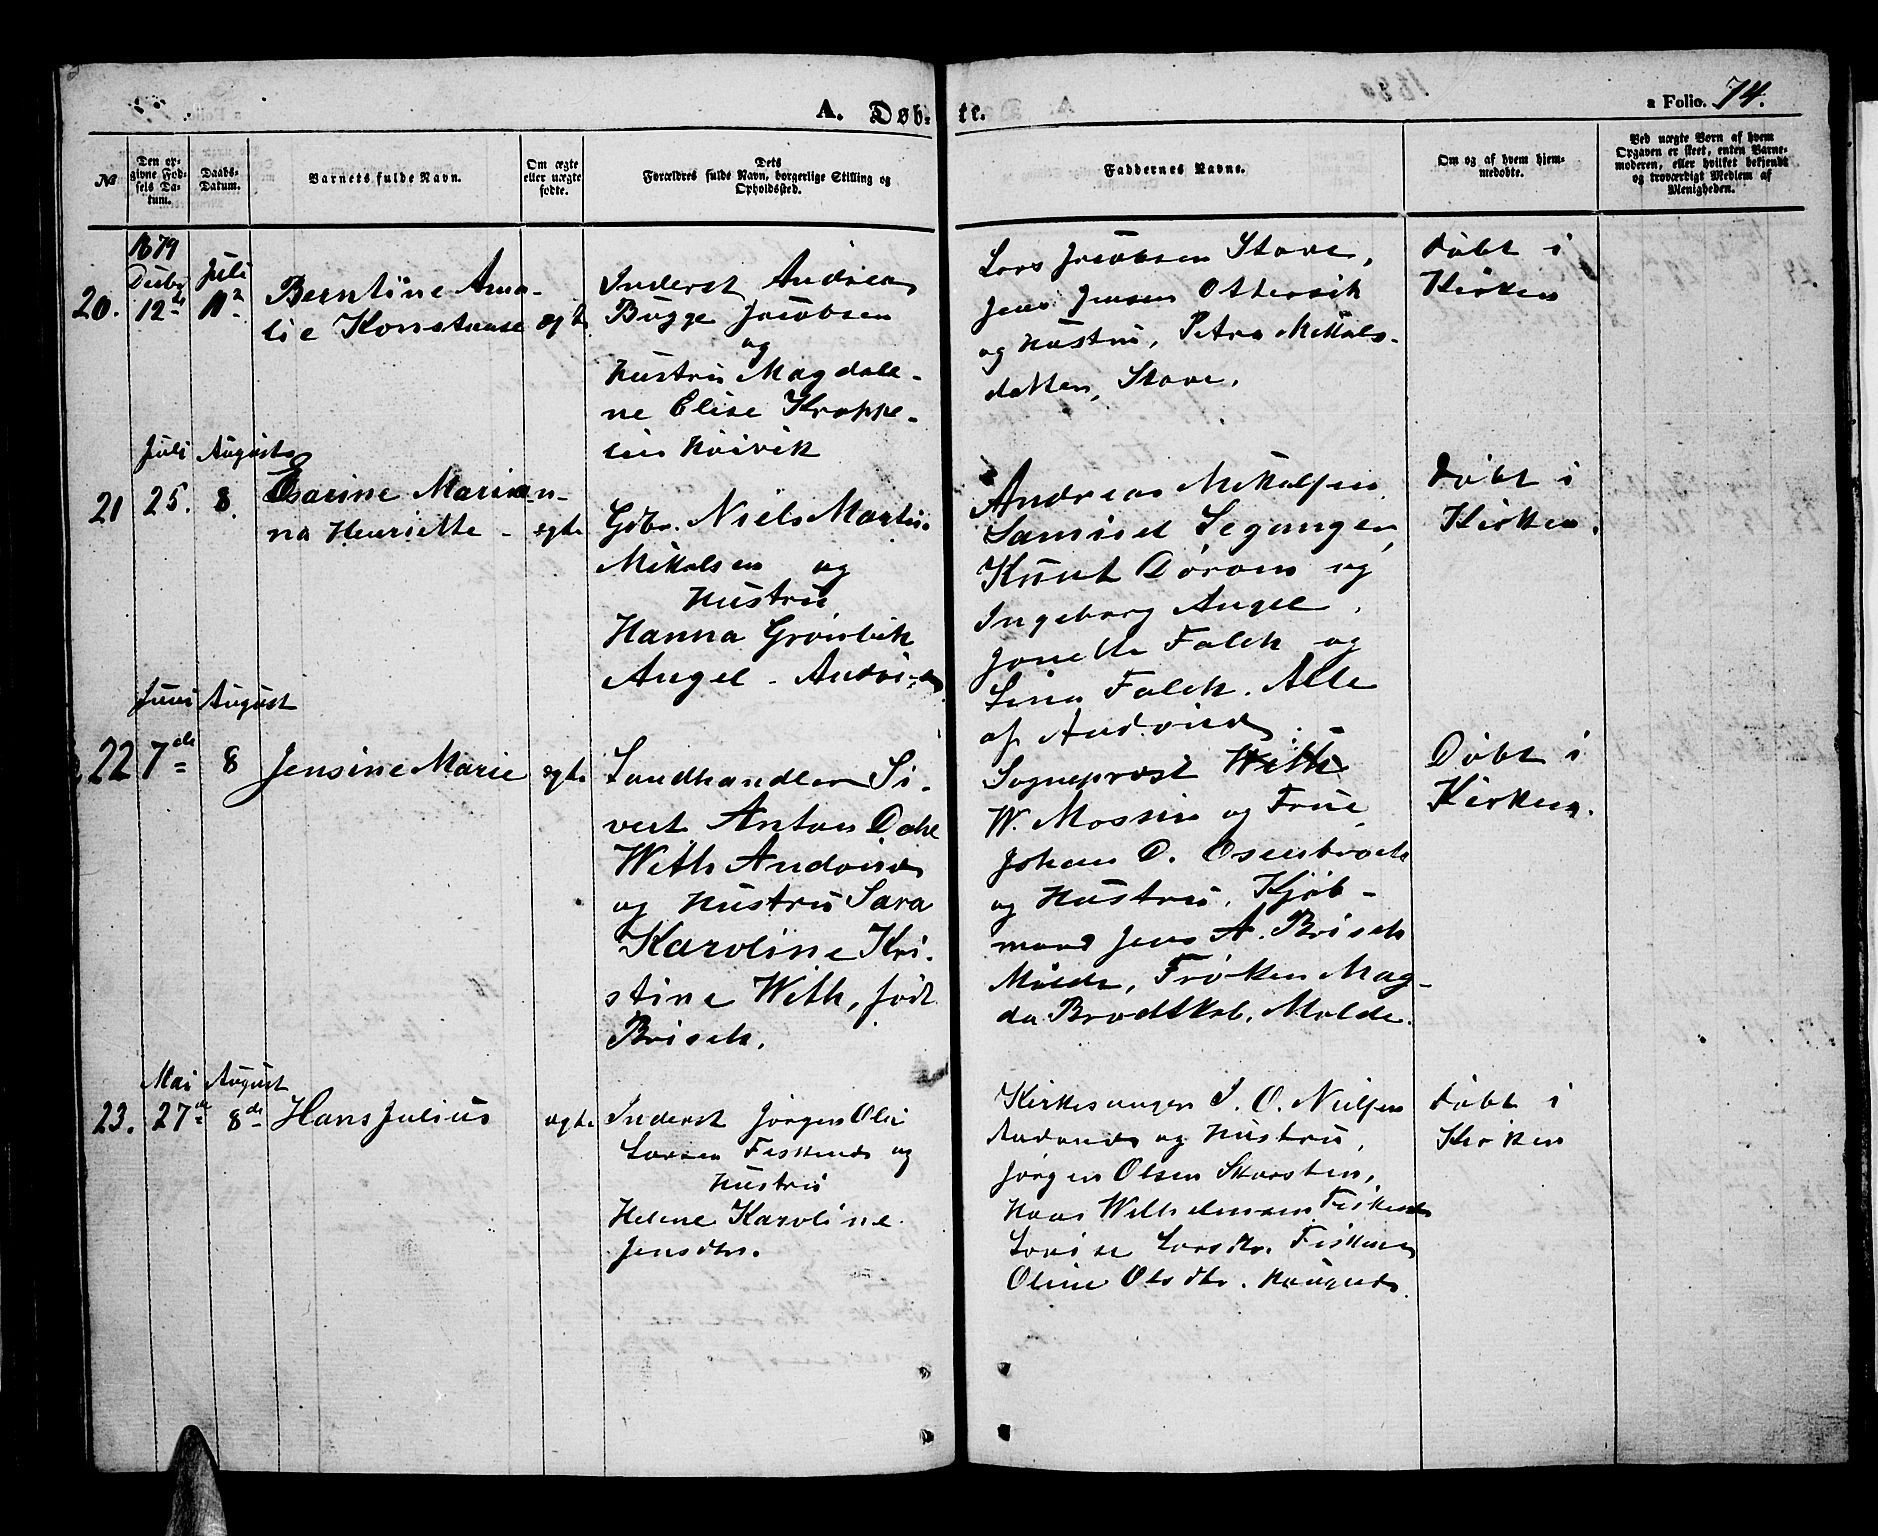 A. Døb-
te.
a Folio. 74.
№
Den op-
givne Fød-
sels Da-
tum.
Daabs-
Datum.
Barnets fulde Navn.
Om ægte
eller uægte
fødte.
Dets
Forældres fulde Navn, borgerlige Stilling og
Opholdssted.
Faddernes Navne.
Om og af hvem hjem-
medøbte.
Ved uægte Børn af hvem
Opgaven er skeet, enten Barne-
moderen, eller hvilket bekjendt
og troværdigt Medlem af
Menigheden.
1879
Juli
20.
12te
11te
Berntine Ama-
lie Konstanse
egte
Inderst Andreas
Bugge Jacobsen
og
Hustru Magdale-
ne Elise Kroppe-
lin Høivik
Lars Jacobsen Stave,
Jens Jensen Ottersik
og Hustru, Petra Mikals-
datter, Stave.
Døbt i
Kirken
Juli
August
21
25.
8.
Marian-
na Henriette
egte
Gdbr. Niels Martin
Mikalsen og
Hustru
Hanna Grönbek
Angel - Andönes
Andreas Mikalsen
Samuel
Knut Döram og
Ingeborg Angel,
Jonette Falck og
Lina Falck. Alle
af Andönes
Døbt i
Kirken.
Juni
August
22
7de
8
Jensine Marie
egte
Landhandler Si-
vert Anton Dahl
With Andönes
og Hustru Sara
Karoline Kri-
stine With, født
Brisch.
Sogneprest With
W. Mossin og Frue,
Johan D. Osenbroch
og Hustru, Kjöb-
mand Jens A. Brisch
Molde, Fröken Mag-
da Brodtkob, Molde.
Døbt i
Kirken.
Mai
August
23.
27de
8de
Hans Julius
egte
Inderst Jörgen Oluf
Larsen Fiskenes og
Hustru
Helene Karoline
Jensdtr.
Kirkesanger I. O. Nielsen
Andenes og Hustru,
Jörgen Olsen Skarsten,
Hans Wilhelmsen Fiskenes
Lovise Larsdtr. Fiskenes
Oline Olsdtr. Haugnes.
Døbt i
Kirken